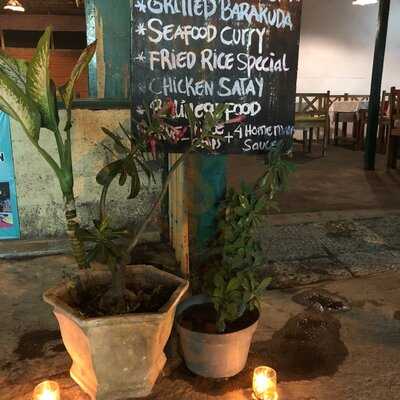 *GRILLED BARAKUDA
*SEAFOOD CURRY
*FRIED RICE SPECIAL
*CHICKEN SATAY
FOOD
+4 HOMEMADE
SAUCE